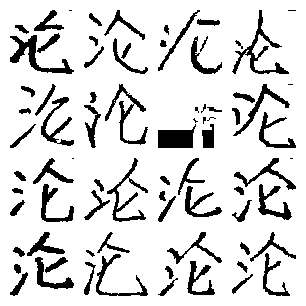 沦沦沦沦
沦沦沦
沦沦沦沦
沦沦沦沦